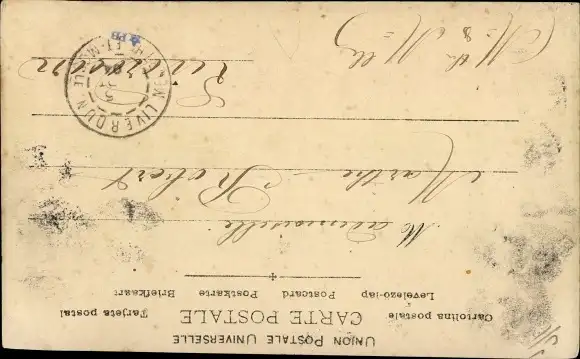 UNION POSTALE UNIVERSELLE
CARTE POSTALE
Cartolina postale
Tarjeta postal
Levelezö-lap Postcard Postkarte Briefkaart
Mademoiselle
Marthe Robert
Liverdun
(M. & M.)
LIVERDUN